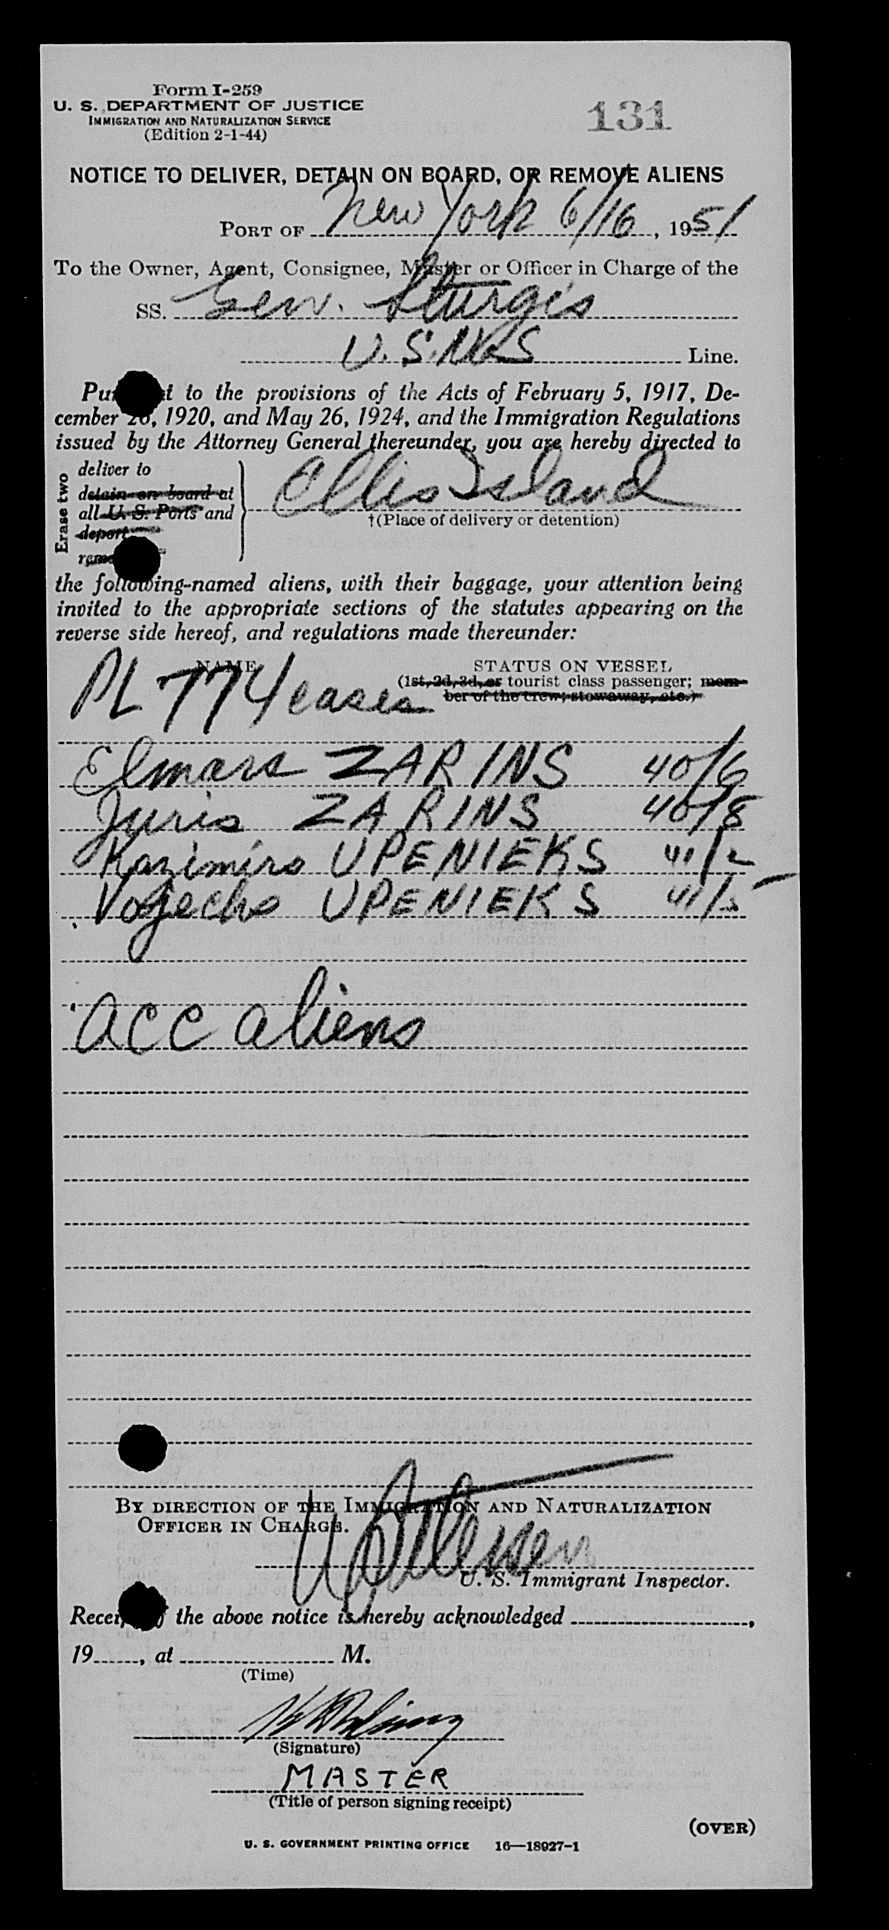 Form I-259
U. S. DEPARTMENT OF JUSTICE
IMMIGRATION AND NATURALIZATION SERVICE
(Edition 2-1-44)
131
NOTICE TO DELIVER, DETAIN ON BOARD, OR REMOVE ALIENS
PORT OF New York 6/16, 1951
To the Owner, Agent, Consignee, Master or Officer in Charge of the
SS. Gen. Sturgis
Line.
to the provisions of the Acts of February 5, 1917, De-
cember 26, 1920, and May 26, 1924, and the Immigration Regulations
issued by the Attorney General thereunder, you are hereby directed to
Erase two
deliver to
detain on board at
all U. S. Ports and
deport
Ellis Island
†(Place of delivery or detention)
the following-named aliens, with their baggage, your attention being
invited to the appropriate sections of the statutes appearing on the
reverse side hereof, and regulations made thereunder:
NAME STATUS ON VESSEL
(1st, 2d, 3d, or tourist class passenger; mem-
ber of the crew; stowaway, etc.)
PL 774 cases
Elmars ZARINS 40/6
Juris ZARINS 40/8
Kazimirs UPENIEKS 41/2
UPENIEKS
acc aliens
BY DIRECTION OF THE IMMIGRATION AND NATURALIZATION
OFFICER IN CHARGE.
U. S. Immigrant Inspector.
the above notice is hereby acknowledged ,
19 , at M.
(Time)
(Signature)
MASTER
(Title of person signing receipt)
(OVER)
U. S. GOVERNMENT PRINTING OFFICE 16—18927-1